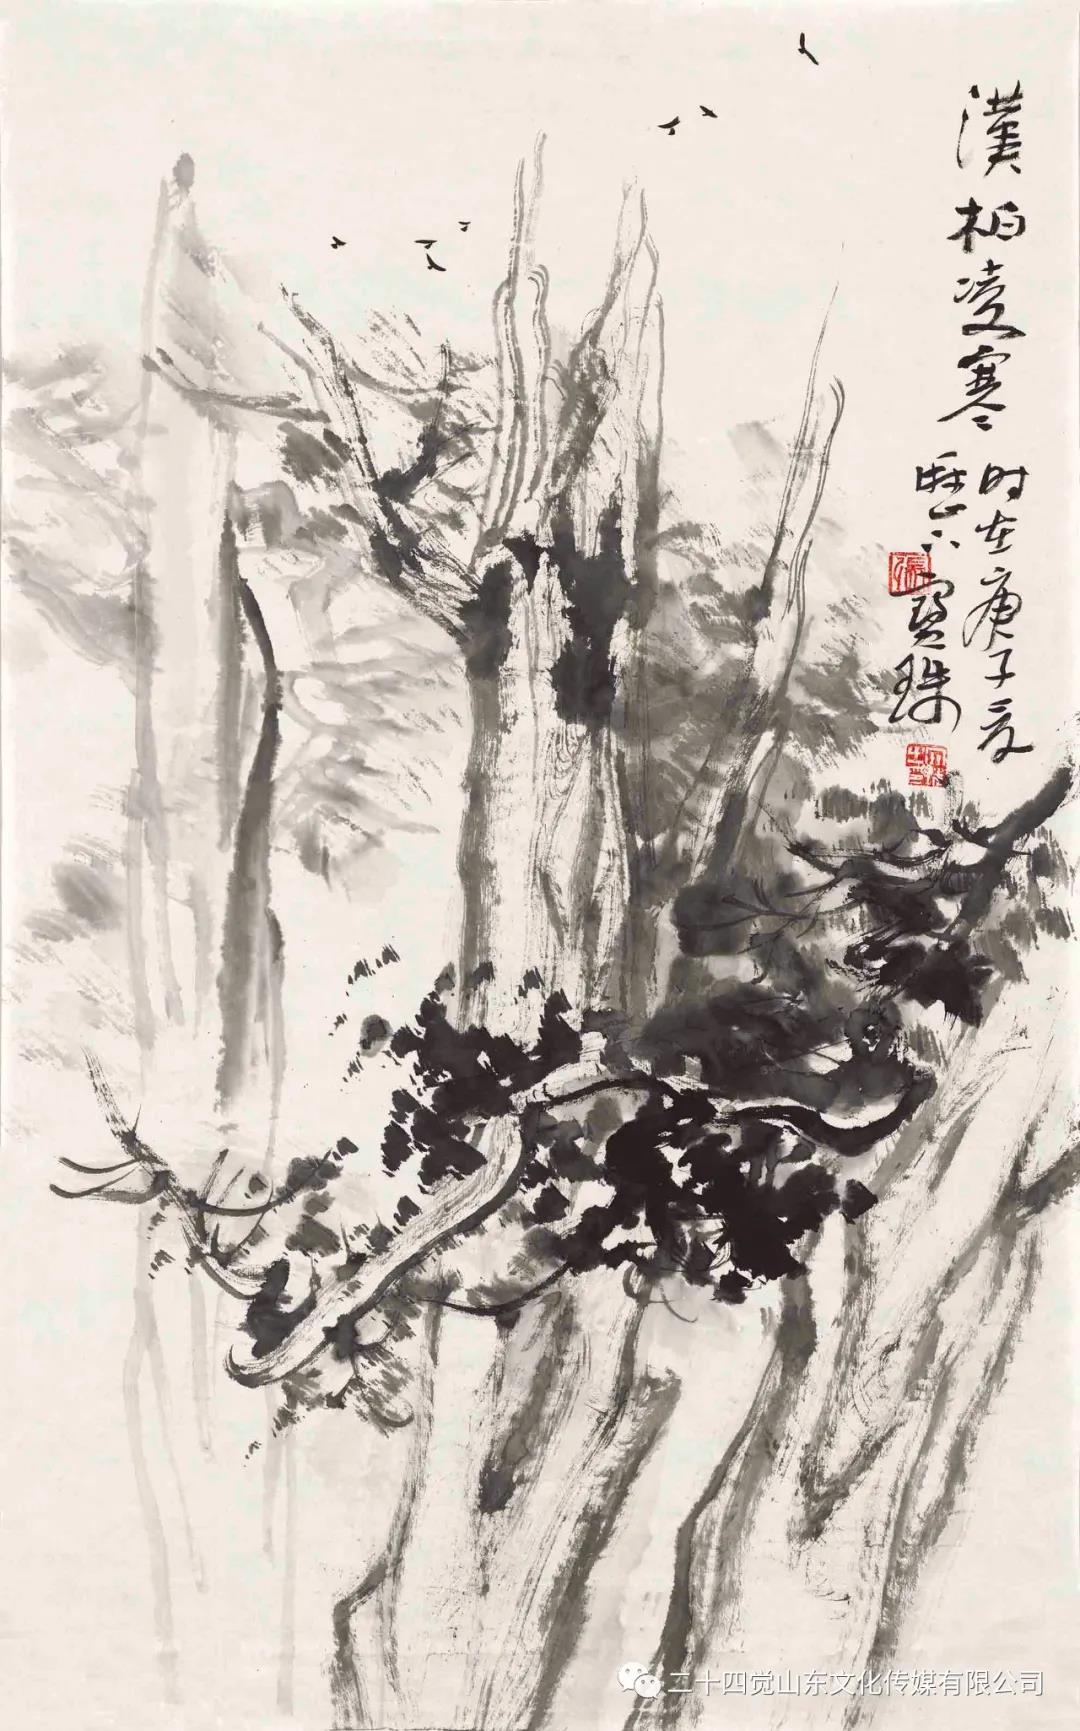 漢柏凌寒
时在庚子夏
山下寶珠
二十四觉山东文化传媒有限公司